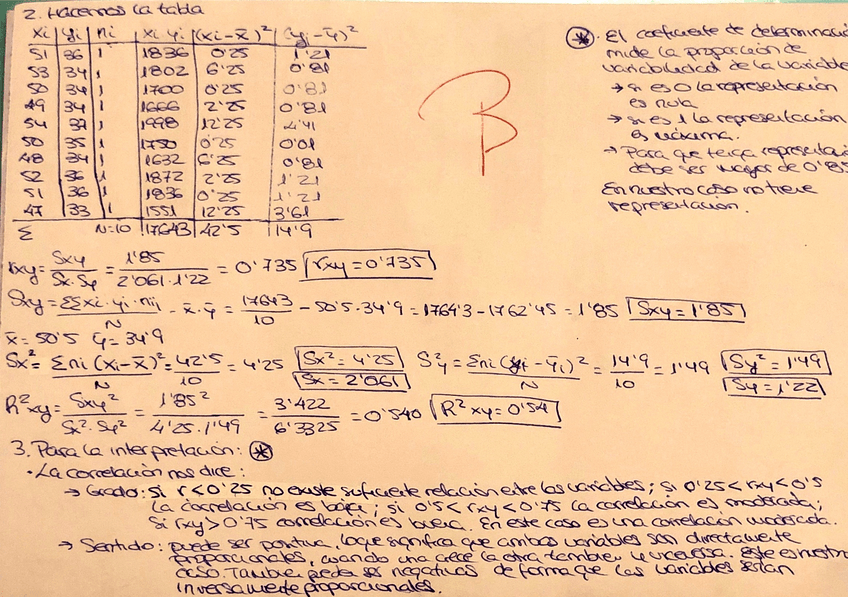 2. Hacemos la tabla
xi | yi | ni | xi yi | (xi - x̄)² | (yi - ȳ)²
51 | 36 | 1 | 1836 | 0'25 | 1'21
53 | 34 | 1 | 1802 | 6'25 | 0'81
50 | 34 | 1 | 1700 | 0'25 | 0'81
49 | 34 | 1 | 1666 | 2'25 | 0'81
54 | 37 | 1 | 1998 | 12'25 | 4'41
50 | 35 | 1 | 1750 | 0'25 | 0'01
48 | 34 | 1 | 1632 | 6'25 | 0'81
52 | 36 | 1 | 1872 | 2'25 | 1'21
51 | 36 | 1 | 1836 | 0'25 | 1'21
47 | 33 | 1 | 1551 | 12'25 | 3'61
Σ N=10 | 17643 | 42'5 | 14'9
B
* El coeficiente de determinació
mide la proporción de
variabilidad de la variable
→ si es 0 la representación
es nula
→ si es 1 la representación
es máxima.
→ Para que tenga representac
debe ser mayor de 0'85
En nuestro caso no tiene
representación.
rxy = Sxy / Sx·Sy = 1'85 / 2'061·1'22 = 0'735 rxy = 0'735
Sxy = ΣΣxi·yi·nij / N - x̄·ȳ = 17643 / 10 - 50'5·34'9 = 1764'3 - 1762'45 = 1'85 Sxy = 1'85
x̄ = 50'5 ȳ = 34'9
Sx² = Σni (xi - x̄)² / N = 42'5 / 10 = 4'25 Sx² = 4'25 Sx = 2'061 S²y = Σni (yi - ȳi)² / N = 14'9 / 10 = 1'49 Sy² = 1'49 Sy = 1'22
R²xy = Sxy² / Sx²·Sy² = 1'85² / 4'25·1'49 = 3'422 / 6'3325 = 0'540 R²xy = 0'54
3. Para la interpretación: *
· La correlación nos dice:
→ Grado: si r < 0'25 no existe suficiente relación entre las variables; si 0'25 < rxy < 0'5
la correlación es baja; si 0'5 < rxy < 0'75 la correlación es moderada;
si rxy > 0'75 correlación es buena. En este caso es una correlación moderada.
→ Sentido: puede ser positiva, lo que significa que ambas variables son directamente
proporcionales, cuando una crece la otra también y viceversa. Este es nuestro
caso. También puede ser negativas de forma que las variables serían
inversamente proporcionales.